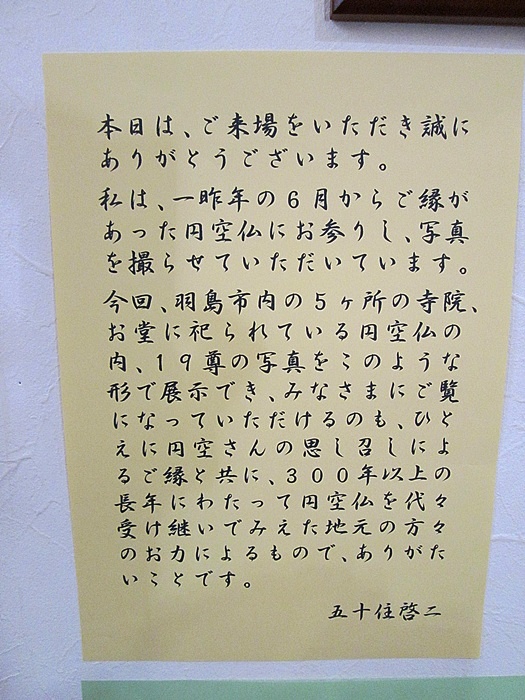 本日は、ご来場をいただき誠に
ありがとうございます。
私は、一昨年の6月からご縁が
あった円空仏にお参りし、写真
を撮らせていただいています。
今回、羽島市内の5ヶ所の寺院、
お堂に祀られている円空仏の
内、19尊の写真をこのような
形で展示でき、みなさまにご覧
になっていただけるのも、ひと
えに円空さんの思し召しによ
るご縁と共に、300年以上の
長年にわたって円空仏を代々
受け継いでみえた地元の方々
のお力によるもので、ありがた
いことです。
五十住啓二